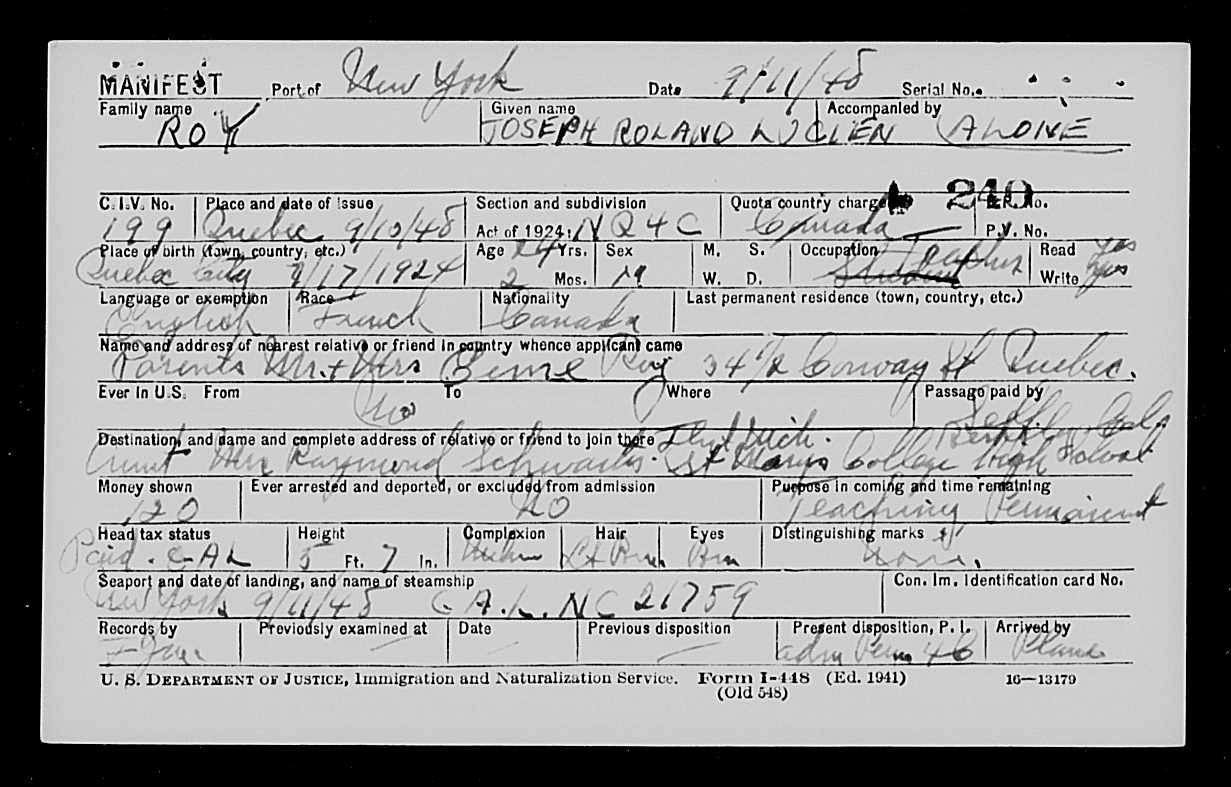 MANIFEST Port of New York Date 9/11/48 Serial No.
Family name Given name Accompanied by
ROY JOSEPH ROLAND LUCIEN ALONE
240
C.I.V. No. Place and date of issue Section and subdivision Quota country charged R.P. No.
199 Quebec 9/10/48 Act of 1924: NQ 4 C Canada P.V. No.
Place of birth (town, country, etc.) Age 24 Yrs. Sex M. S. Occupation Read yes
Quebec City 7/17/1924 2 Mos. M W. D. Student Teacher Write yes
Language or exemption Race Nationality Last permanent residence (town, country, etc.)
English French Canada
Name and address of nearest relative or friend in country whence applicant came
Parents Mr. + Mrs Roy 34 1/2 Conway St Quebec.
Ever in U.S. From To Where Passage paid by
No Self
Destination, and name and complete address of relative or friend to join there
Aunt Mrs Raymond St Marys College High School
Money shown Ever arrested and deported, or excluded from admission Purpose in coming and time remaining
120 NO Teaching Permanent
Head tax status Height Complexion Hair Eyes Distinguishing marks
Paid. CAL 5 Ft. 7 In. Lt Brn Brn None.
Seaport and date of landing, and name of steamship Con. Im. Identification card No.
New York 9/11/48 C.A.L. NC 21759
Records by Previously examined at Date Previous disposition Present disposition, P. I. Arrived by
adm Perm 4C Plane
U. S. DEPARTMENT OF JUSTICE, Immigration and Naturalization Service. Form I-448 (Ed. 1941) 16—13179
(Old 548)